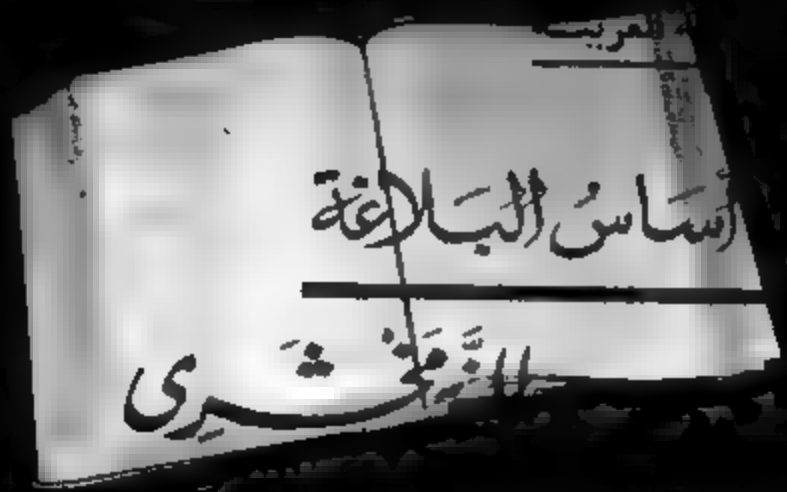 العربية
أَسَاسُ الْبَلَاغَة
الزَّمَخْشَرِى